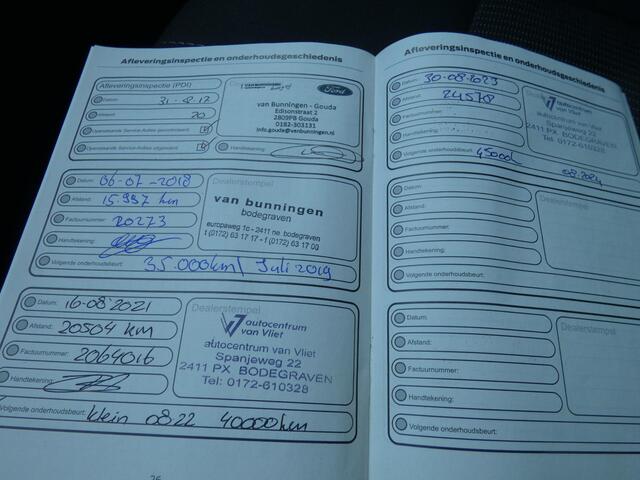 Afleveringsinspectie en onderhoudsgeschiedenis
Afleveringsinspectie (PDI)
Datum:
20
Openstaande Service-Acties gecontroleerd:
Openstaande Service-Acties uitgevoerd:
Handtekening:
VAN BUNNINGEN
Ford
van Bunningen - Gouda
Edisonstraat 2
2809PB Gouda
0182-303131
info.gouda@vanbunningen.nl
Datum: 06-07-2018
Afstand: 15.997 km
Factuurnummer: 20273
Handtekening:
Volgende onderhoudsbeurt: 35.000km / Juli 2019
Dealerstempel
van bunningen
bodegraven
europaweg 1c - 2411 ne bodegraven
t (0172) 63 17 17 - f (0172) 63 17 00
Datum: 16-08-2021
Afstand: 20504 km
Factuurnummer: 2064016
Handtekening:
Volgende onderhoudsbeurt: klein 0822 40000km
Dealerstempel
autocentrum
van Vliet
autocentrum van Vliet
Spanjeweg 22
2411 PX BODEGRAVEN
Tel: 0172-610328
Afleveringsinspectie en onderhoudsgeschiedenis
Datum: 30-08-2023
Afstand: 24578
Factuurnummer:
Handtekening:
Volgende onderhoudsbeurt: 45000 08.2024
Dealerstempel
autocentrum
van Vliet
autocentrum van Vliet
Spanjeweg 22
2411 PX BODEGRAVEN
Tel: 0172-610328
Datum:
Afstand:
Factuurnummer:
Handtekening:
Volgende onderhoudsbeurt:
Dealerstempel
Datum:
Afstand:
Factuurnummer:
Handtekening:
Volgende onderhoudsbeurt:
Dealerstempel